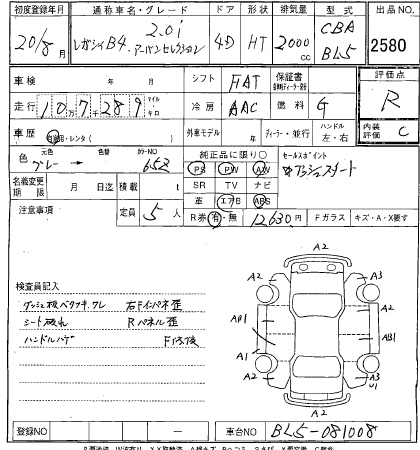 初度登録年月 通称車名・グレード ドア 形状 排気量 型式 出品NO
20/8月 レガシィB4 2.0i アーバンセレクション 4D HT 2000cc CBA BL5 2580
車検 年 月 シフト FAT 保証書 評価点
走行 10万7千289 マイル キロ 冷房 AAC 燃料 G R
車歴 自家用・レンタ( ) 外車モデル 年 ディーラー・並行 ハンドル 左・右 内装評価 C
色 元色 色替 カラーNO 純正品に限り○ セールスポイント
グレー → 652 PS PW AW プッシュスタート
名義変更期限 月 日迄 積載 t SR TV ナビ
注意事項 定員 5人 革 エアB ABS
R券 有・無 12630円 Fガラス キズ・A・X要す
検査員記入
ダッシュ板ベタツキ、ワレ 右Fインパネ歪
シート破れ Rパネル歪
ハンドルハゲ F修後
A2
A2 A3
AP1 AB1
A1
A2 A3
U1
A2
登録NO 車台NO BL5-081008